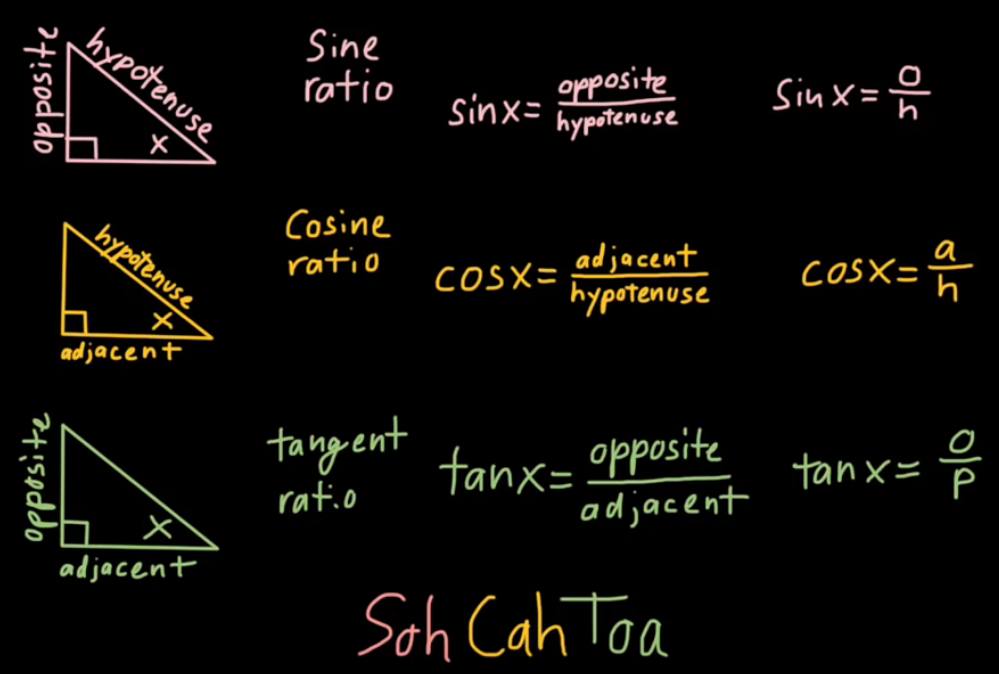 opposite
hypotenuse
x
Sine
ratio
sinx= opposite/hypotenuse
Sinx= o/h
hypotenuse
x
adjacent
Cosine
ratio
cosx= adjacent/hypotenuse
cosx= a/h
opposite
x
adjacent
tangent
ratio
tanx= opposite/adjacent
tanx= o/p
Soh Cah Toa